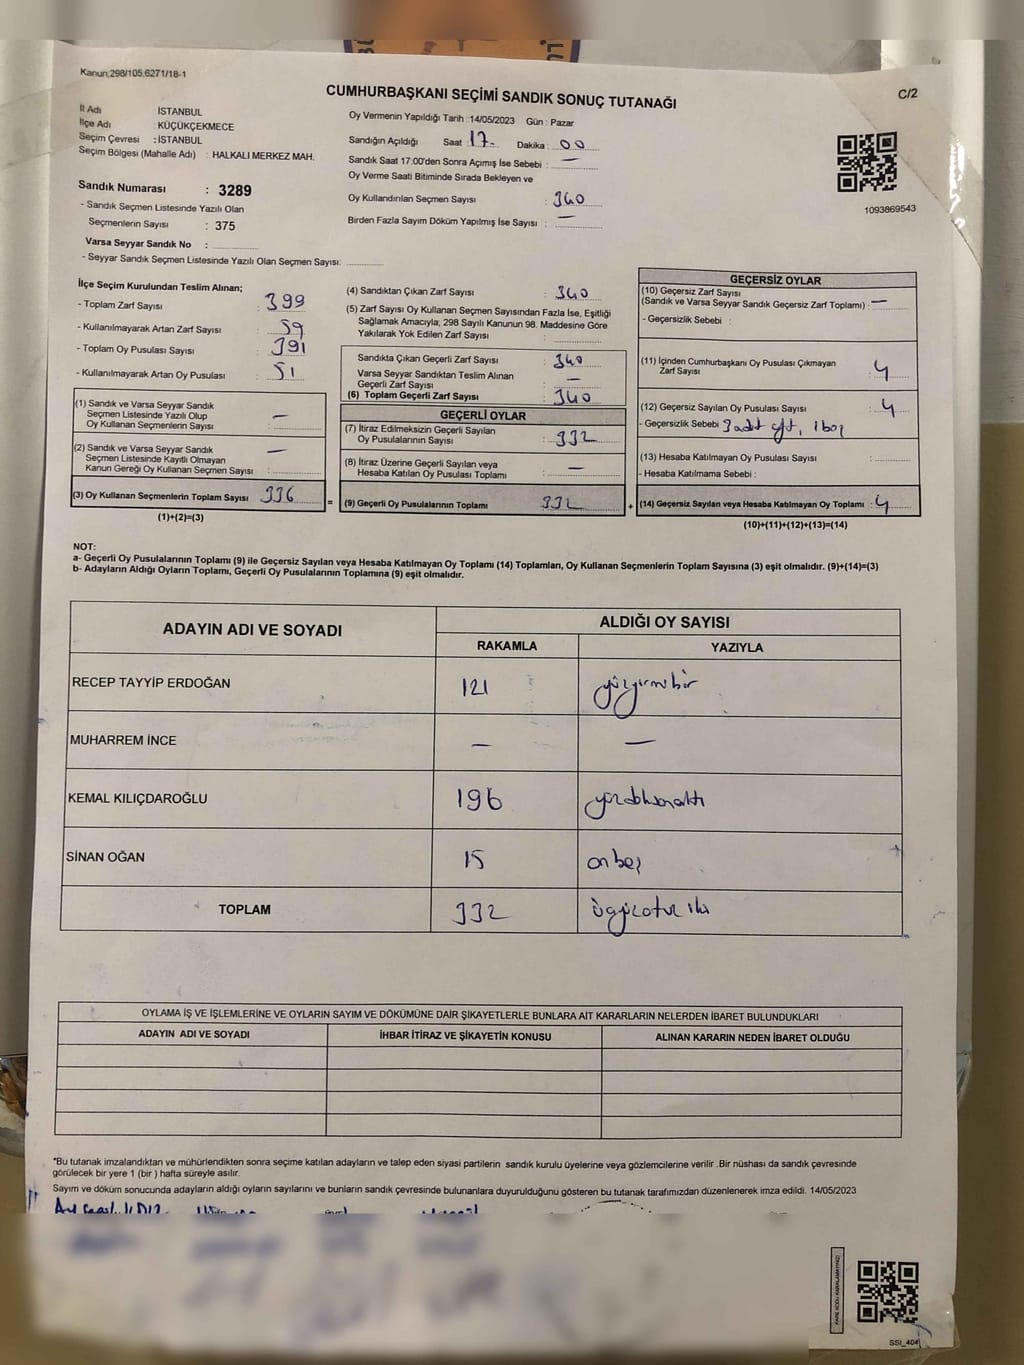 Kanun:298/105,6271/18-1
CUMHURBAŞKANI SEÇİMİ SANDIK SONUÇ TUTANAĞI
C/2
İl Adı İSTANBUL
İlçe Adı : KÜÇÜKÇEKMECE
Seçim Çevresi : İSTANBUL
Seçim Bölgesi (Mahalle Adı) : HALKALI MERKEZ MAH.
Sandık Numarası : 3289
- Sandık Seçmen Listesinde Yazılı Olan
Seçmenlerin Sayısı : 375
Varsa Seyyar Sandık No :
- Seyyar Sandık Seçmen Listesinde Yazılı Olan Seçmen Sayısı:
Oy Vermenin Yapıldığı Tarih :14/05/2023 Gün : Pazar
Sandığın Açıldığı Saat :17.- Dakika : 00
Sandık Saat 17:00'den Sonra Açımış İse Sebebi : —
Oy Verme Saati Bitiminde Sırada Bekleyen ve
Oy Kullandırılan Seçmen Sayısı : 340
Birden Fazla Sayım Döküm Yapılmış İse Sayısı : —
1093869543
İlçe Seçim Kurulundan Teslim Alınan;
- Toplam Zarf Sayısı : 399
- Kullanılmayarak Artan Zarf Sayısı : 59
- Toplam Oy Pusulası Sayısı : 391
- Kullanılmayarak Artan Oy Pusulası : 51
(1) Sandık ve Varsa Seyyar Sandık
Seçmen Listesinde Yazılı Olup
Oy Kullanan Seçmenlerin Sayısı : —
(2) Sandık ve Varsa Seyyar Sandık
Seçmen Listesinde Kayıtlı Olmayan
Kanun Gereği Oy Kullanan Seçmen Sayısı : —
(3) Oy Kullanan Seçmenlerin Toplam Sayısı 336
(1)+(2)=(3)
(4) Sandıktan Çıkan Zarf Sayısı : 340
(5) Zarf Sayısı Oy Kullanan Seçmen Sayısından Fazla İse, Eşitliği
Sağlamak Amacıyla, 298 Sayılı Kanunun 98. Maddesine Göre
Yakılarak Yok Edilen Zarf Sayısı :
Sandıkta Çıkan Geçerli Zarf Sayısı : 340
Varsa Seyyar Sandıktan Teslim Alınan
Geçerli Zarf Sayısı : —
(6) Toplam Geçerli Zarf Sayısı : 340
GEÇERLİ OYLAR
(7) İtiraz Edilmeksizin Geçerli Sayılan
Oy Pusulalarının Sayısı : 332
(8) İtiraz Üzerine Geçerli Sayılan veya
Hesaba Katılan Oy Pusulası Toplamı : —
= (9) Geçerli Oy Pusulalarının Toplamı 332
GEÇERSİZ OYLAR
(10) Geçersiz Zarf Sayısı
(Sandık ve Varsa Seyyar Sandık Geçersiz Zarf Toplamı) : —
- Geçersizlik Sebebi :
(11) İçinden Cumhurbaşkanı Oy Pusulası Çıkmayan
Zarf Sayısı : 4
(12) Geçersiz Sayılan Oy Pusulası Sayısı : 4
- Geçersizlik Sebebi 3 adet çift, 1 boş
(13) Hesaba Katılmayan Oy Pusulası Sayısı :
- Hesaba Katılmama Sebebi :
+ (14) Geçersiz Sayılan veya Hesaba Katılmayan Oy Toplamı : 4
(10)+(11)+(12)+(13)=(14)
NOT:
a- Geçerli Oy Pusulalarının Toplamı (9) ile Geçersiz Sayılan veya Hesaba Katılmayan Oy Toplamı (14) Toplamları, Oy Kullanan Seçmenlerin Toplam Sayısına (3) eşit olmalıdır. (9)+(14)=(3)
b- Adayların Aldığı Oyların Toplamı, Geçerli Oy Pusulalarının Toplamına (9) eşit olmalıdır.
ADAYIN ADI VE SOYADI ALDIĞI OY SAYISI
RAKAMLA YAZIYLA
RECEP TAYYİP ERDOĞAN 121 yüzyirmibir
MUHARREM İNCE — —
KEMAL KILIÇDAROĞLU 196 yüzdoksanaltı
SİNAN OĞAN 15 onbeş
TOPLAM 332 üçyüzotuz iki
OYLAMA İŞ VE İŞLEMLERİNE VE OYLARIN SAYIM VE DÖKÜMÜNE DAİR ŞİKAYETLERLE BUNLARA AİT KARARLARIN NELERDEN İBARET BULUNDUKLARI
ADAYIN ADI VE SOYADI İHBAR İTİRAZ VE ŞİKAYETİN KONUSU ALINAN KARARIN NEDEN İBARET OLDUĞU
*Bu tutanak imzalandıktan ve mühürlendikten sonra seçime katılan adayların ve talep eden siyasi partilerin sandık kurulu üyelerine veya gözlemcilerine verilir .Bir nüshası da sandık çevresinde
görülecek bir yere 1 (bir ) hafta süreyle asılır.
Sayım ve döküm sonucunda adayların aldığı oyların sayılarını ve bunların sandık çevresinde bulunanlara duyurulduğunu gösteren bu tutanak tarafımızdan düzenlenerek imza edildi. 14/05/2023
SSİ_404